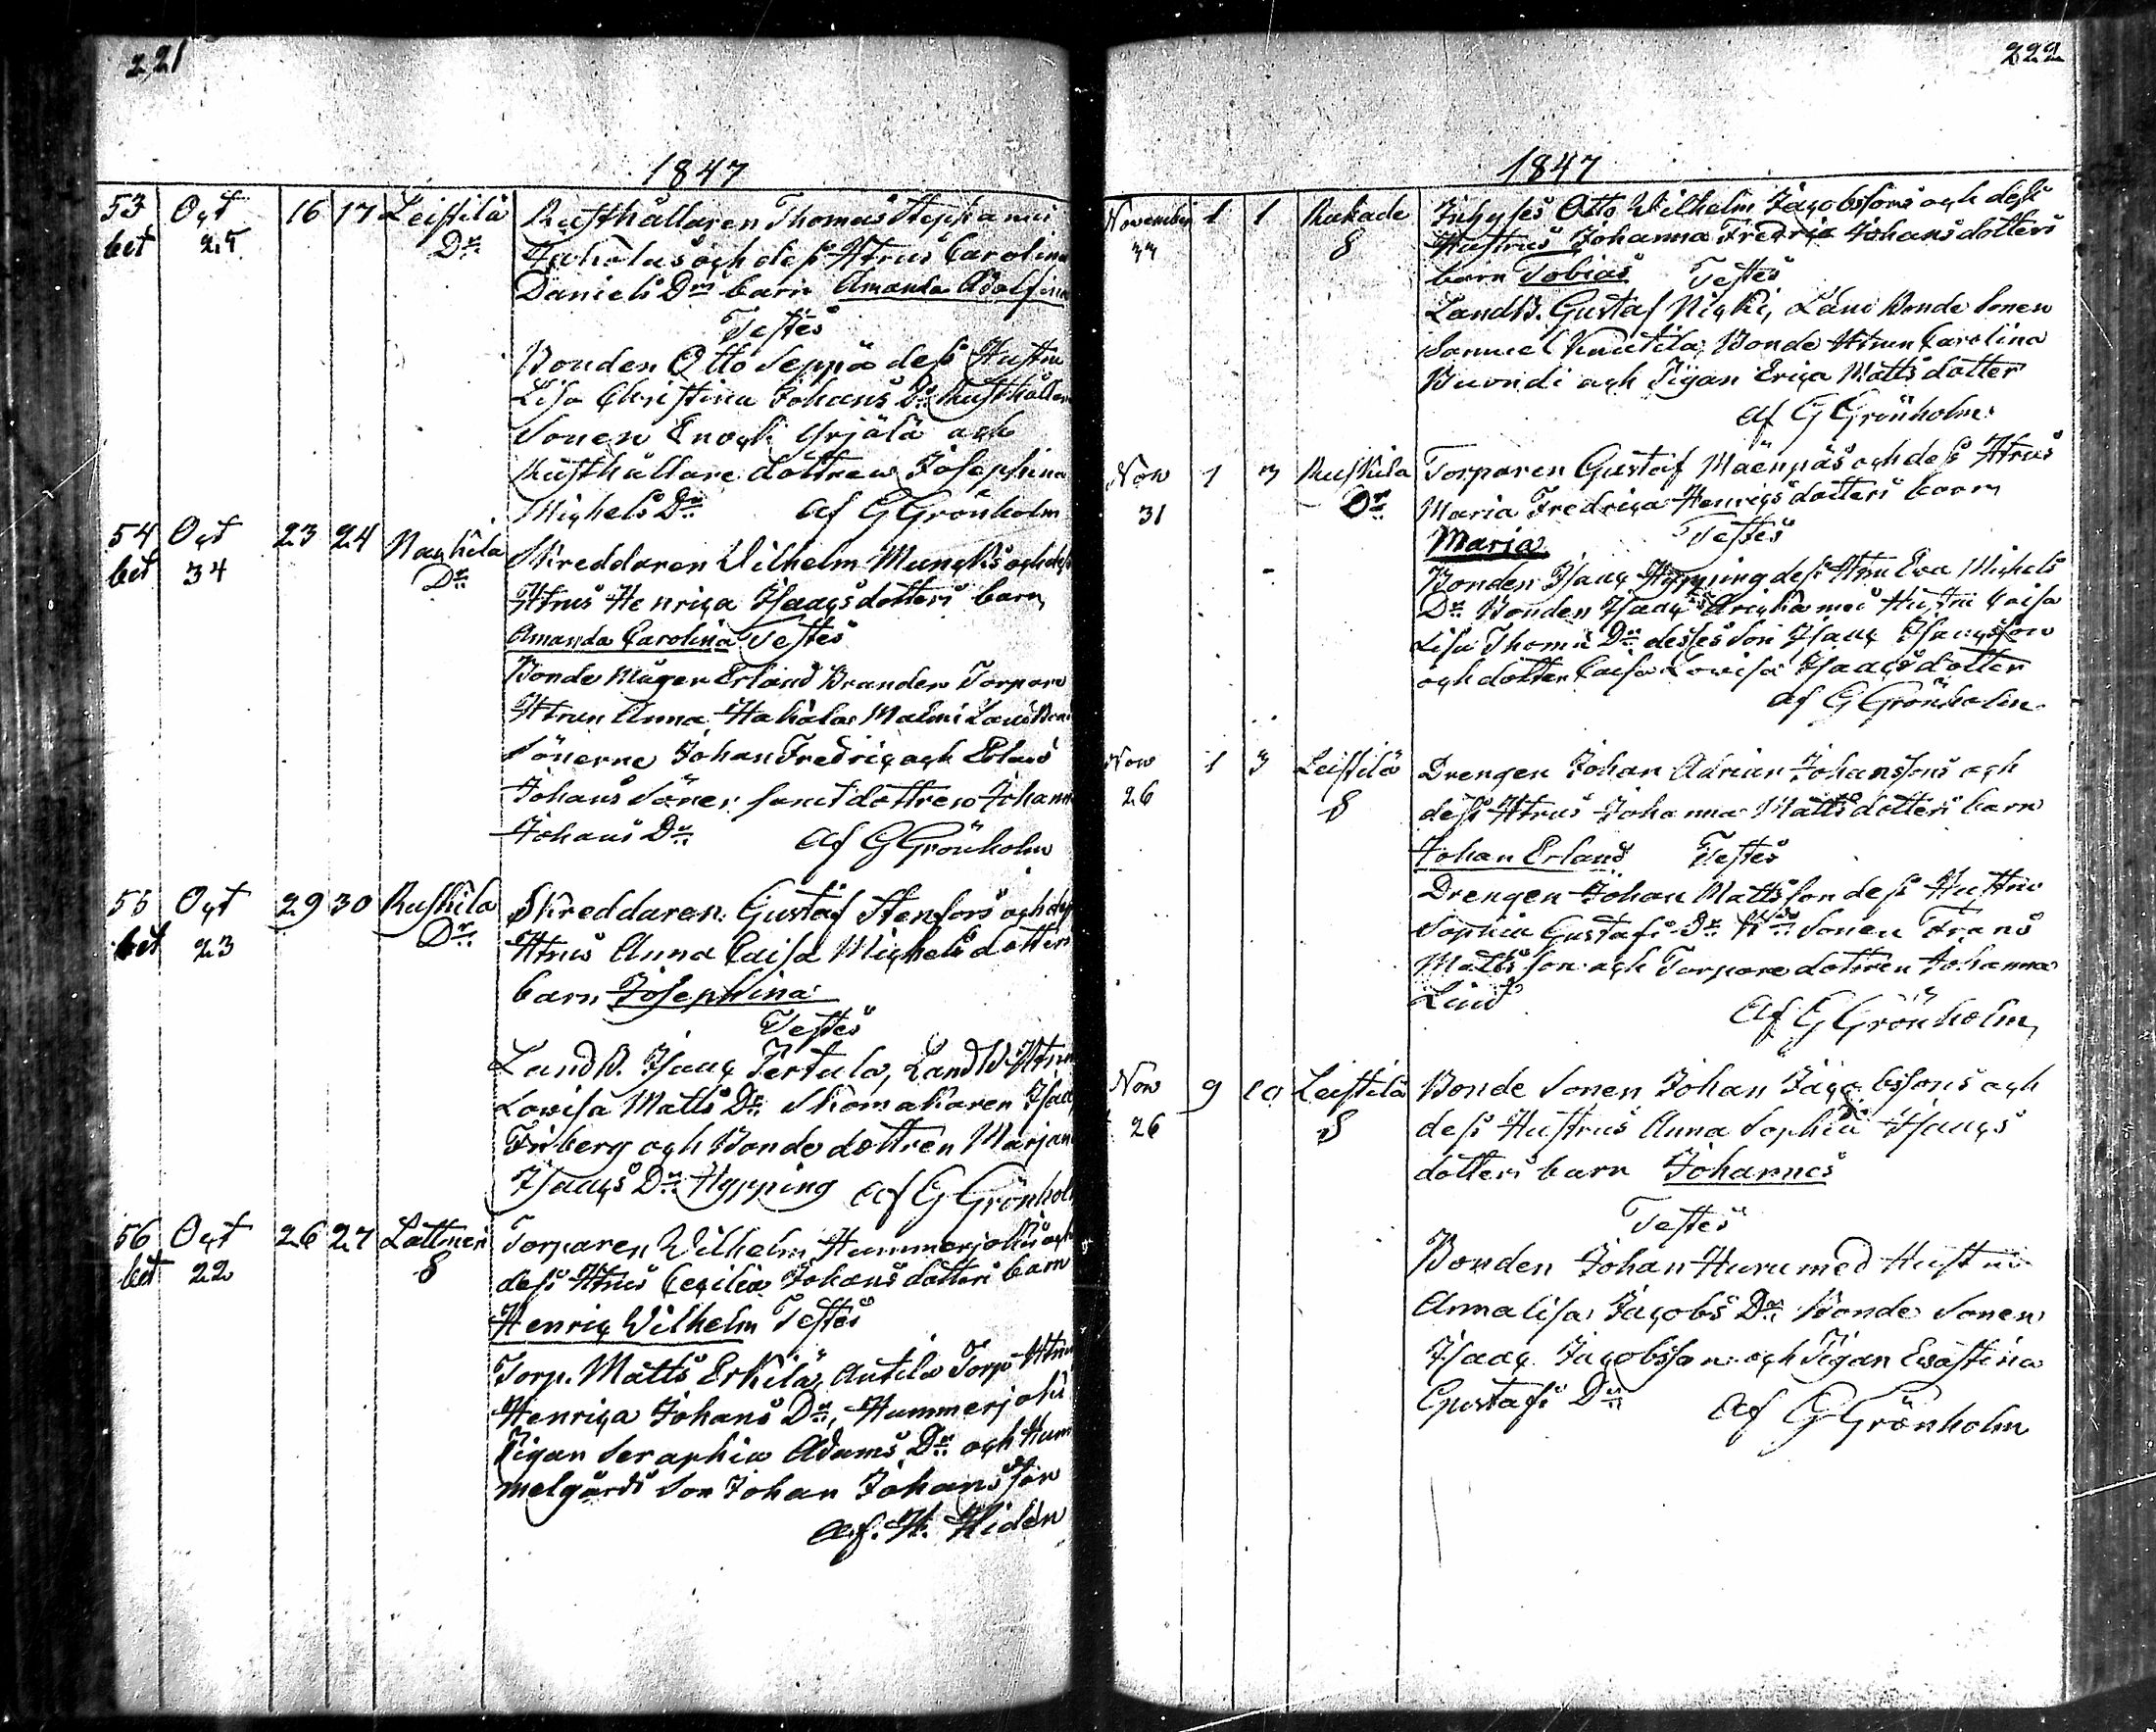 221
1847
53 Oct 16 17 Leistilä Rusthållaren Thomas
bet 25 Dr och dess Htrus Carolina
Daniels Drs barn Amanda Adolfina
Testes
Bonden Otto Seppä dess Hustru
Lisa Christina Johans Dr Rusthållare
Sonen Enock Yrjälä och
Rusthållare dottren Josephina
Michels Dr af G Grönholm
54 Oct 23 24 Naukila Skreddaren Wilhelm Muncks och dess
bet 34 Dr Htrus Henrica Isaacsdotters barn
Amanda Carolina Testes
Bonde Mågen Erland Brander Torpare
Htrun Anna Hakala Malmi
Sönerne Johan Fredric och Erland
Johans Söner samt dottren Johanna
Johans Dr af G Grönholm
55 Oct 29 30 Ruskila Skreddaren Gustaf Stenfors och dess
bet 23 Dr Htrus Anna Caisa Michelsdotters
barn Josephina
Testes
LandB. Isaac Tertala, LandB. Htrun
Lovisa Matts Dr Skomakaren Isaac
Friberg och Bonde dottren Marjana
Isaacs Dr Hypping af G Grönholm
56 Oct 26 27 Lattmeri Torparen Wilhelm Hummerjokis och
bet 22 S dess Htrus Cecilia Johansdotters barn
Henric Wilhelm Testes
Torp. Matts Erkilä Autila Torp Htrun
Henrica Johans Dr, Hummerjoki
Pigan Seraphia Adams Dr och Hum
melgårds Son Johan Johansson
af. H. Hidén
222
1847
November 1 1 Rukade Inhyses Otto Wilhelm Jacobssons och dess
S Hustrus Johanna Fredrica Johansdotters
barn Tobias Testes
LandB. Gustaf Nicki, Land Bonde Sonen
Samuel Knuutila, Bonde Htrun Carolina
Buondi och Pigan Erica Mattsdotter
af G Grönholm
Nov 1 3 Ruskila Torparen Gustaf Mäenpäs och dess Htrus
31 Dr Maria Fredrica Henricsdotters barn
Maria Testes
Bonden Isaac Hypping dess Htru Eva Michels
Dr Bonden Isaac med Hustru Caisa
Lisa Thomas Dr desses Son Isaac Isaacsson
och dotter Caisa Lovisa Isaacsdotter
af G Grönholm
Nov 1 3 Leistilä Drengen Johan Adrian Johanssons och
26 S dess Htrus Johanna Mattsdotters barn
Johan Erland Testes
Drengen Johan Mattsson dess Hustru
Sophia Gustafs Dr Sonen Frans
Mattsson och Torpare dottren Johanna
Lind
af G Grönholm
Nov 9 10 Leistilä Bonde Sonen Johan Jacobssons och
26 S dess Hustrus Anna Sophia Isaacs
dotters barn Johannes
Testes
Bonden Johan Huru med Hustru
Annalisa Jacobs Dr Bonde Sonen
Isaac Jacobsson och Pigan Evastina
Gustafs Dr af G Grönholm